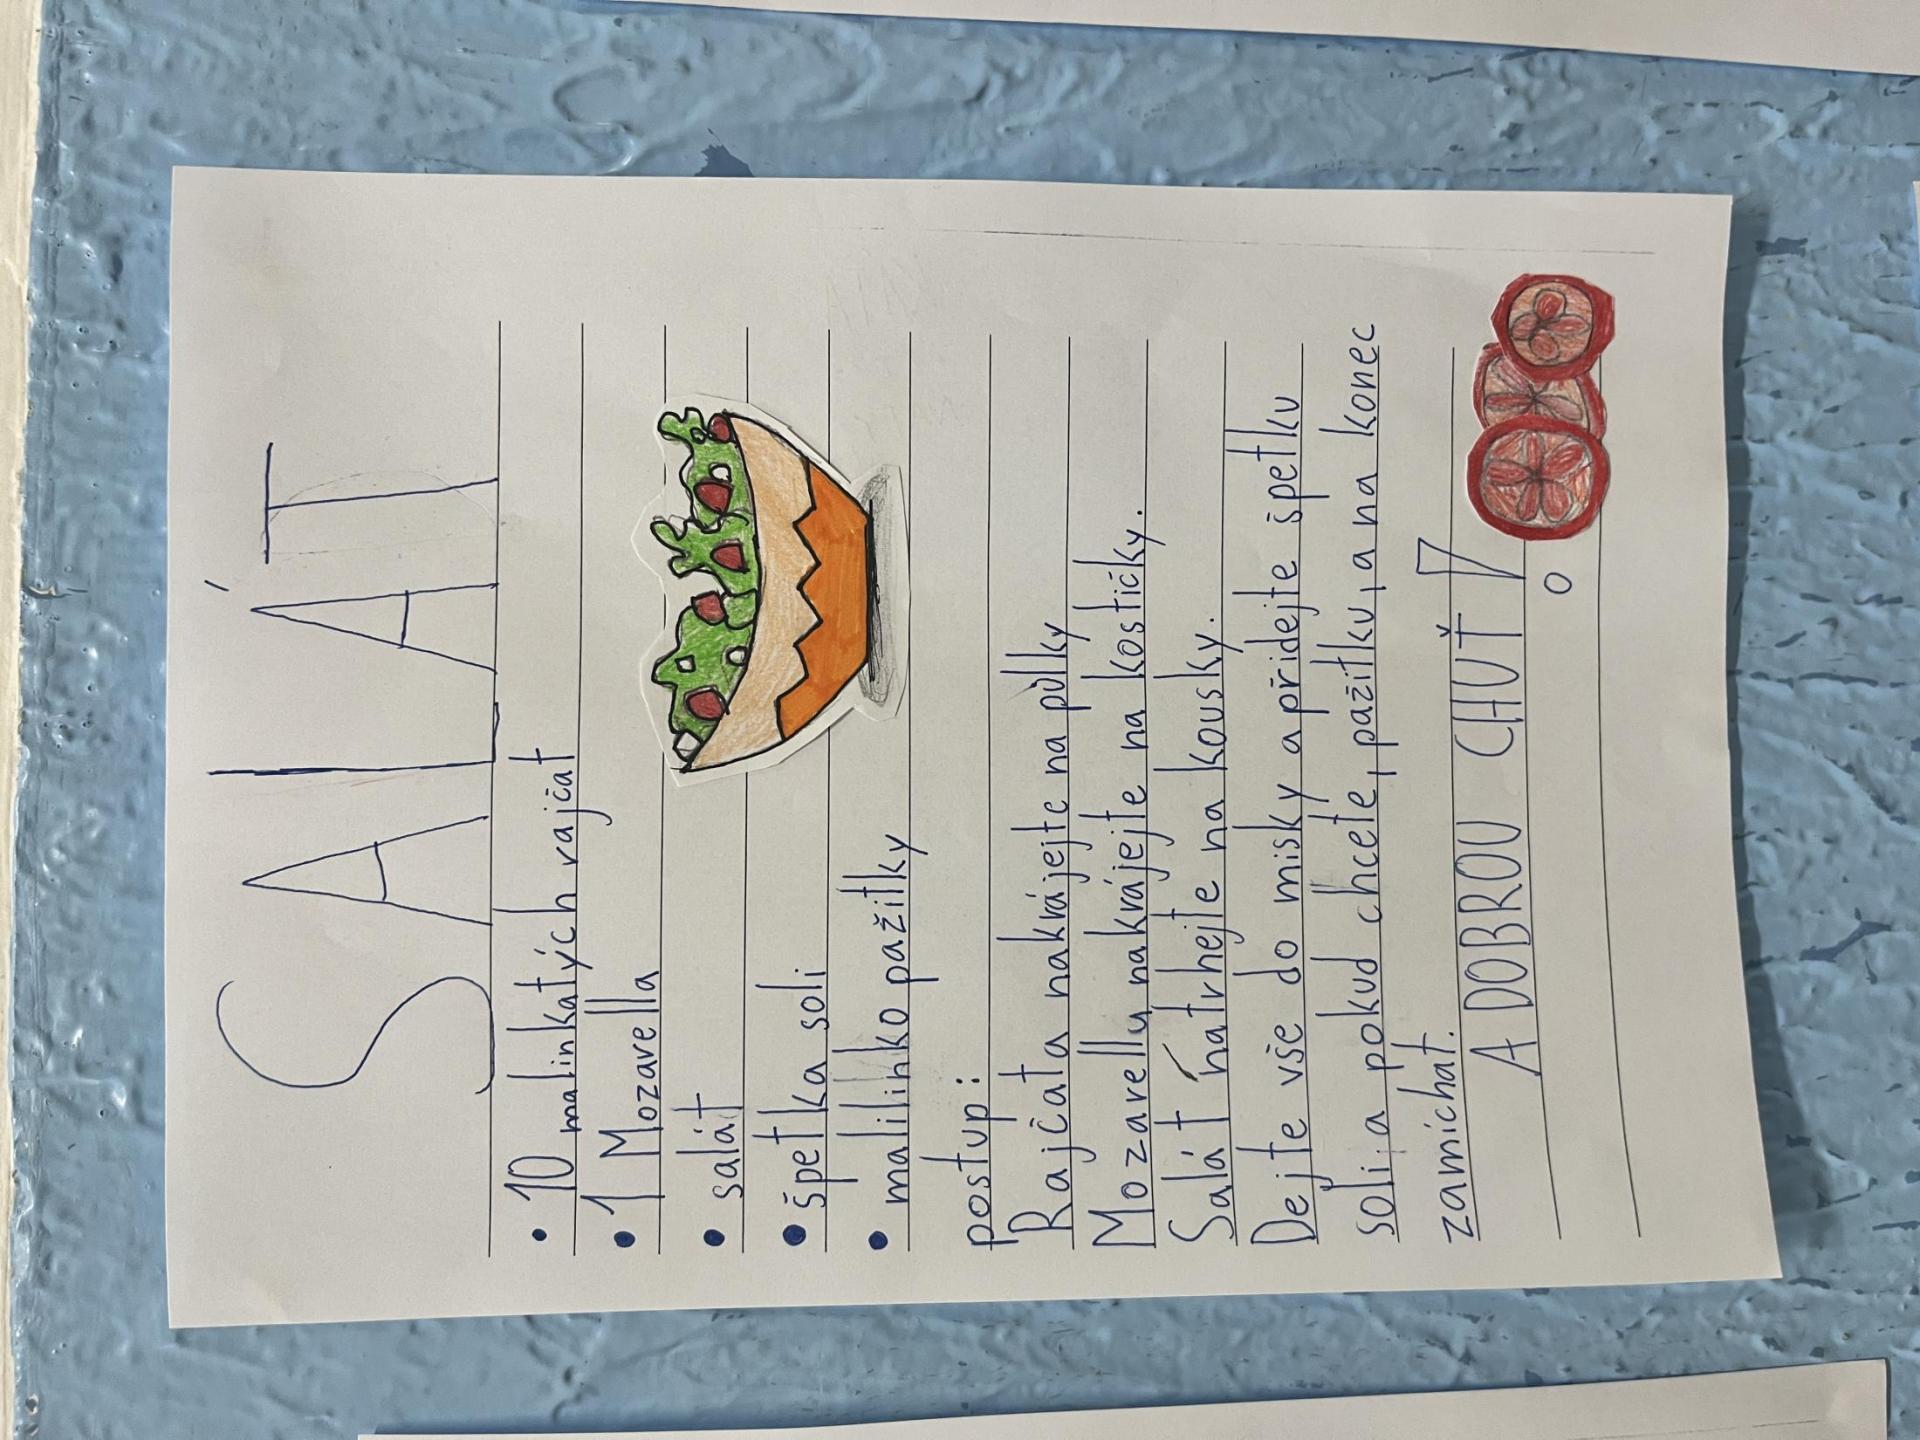 SALÁT
• 10 malinkatých rajčat
• 1 Mozavella
• salát
• špetka soli
• malilinko pažitky
postup:
Rajčata nakrájejte na půlky
Mozavellu nakrájejte na kostičky.
Salát natrhejte na kousky.
Dejte vše do misky a přidejte špetku
soli a pokud chcete, pažitku, a na konec
zamíchat.
A DOBROU CHUŤ!